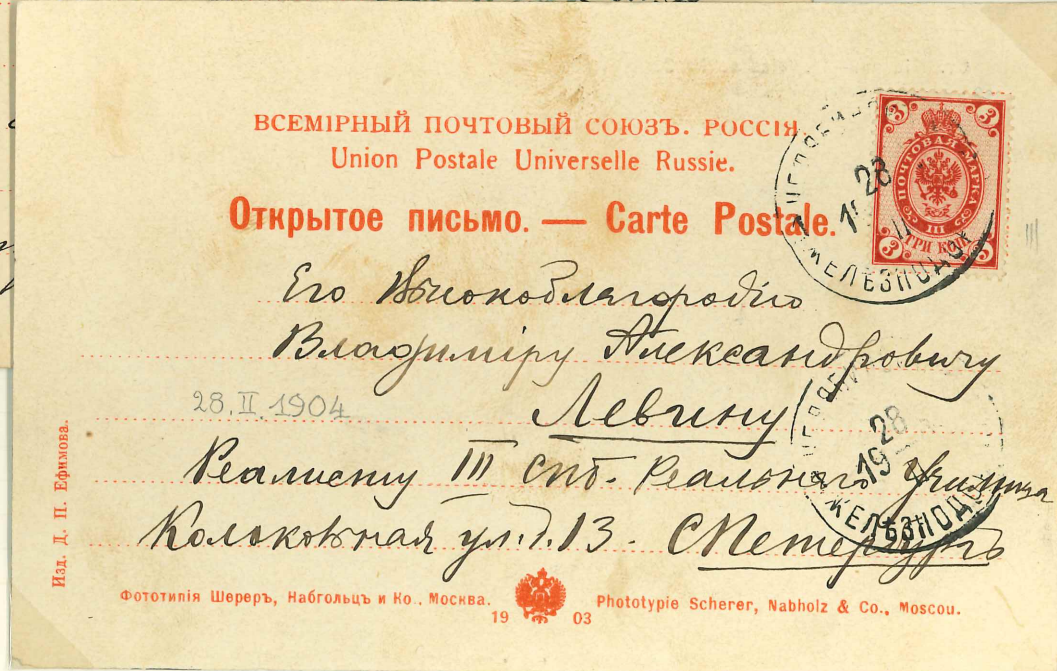 ВСЕМІРНЫЙ ПОЧТОВЫЙ СОЮЗЪ. РОССІЯ
Union Postale Universelle Russie.
Открытое письмо. — Carte Postale.
3 3
ПОЧТОВАЯ МАРКА
III
3 ТРИ КОП
28
ЖЕЛѢЗНОДО
Его Высокоблагородію
Владиміру Александровичу
28.II.1904
Левину
28
19
Реалисту III спб. Реального Училища
ЖЕЛѢЗНОДО
ул. д. 13. СПетербургъ
Изд. Д. П. Ефимова.
Фототипія Шереръ, Набгольцъ и Ко., Москва.
Phototypie Scherer, Nabholz & Co., Moscou.
19 03